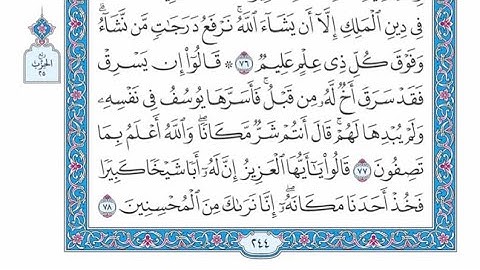 فِي دِينِ ٱلۡمَلِكِ إِلَّآ أَن يَشَآءَ ٱللَّهُۚ نَرۡفَعُ دَرَجَٰتٖ مَّن نَّشَآءُۗ
وَفَوۡقَ كُلِّ ذِي عِلۡمٍ عَلِيمٞ ٧٦ ۞ قَالُوٓاْ إِن يَسۡرِقۡ
فَقَدۡ سَرَقَ أَخٞ لَّهُۥ مِن قَبۡلُۚ فَأَسَرَّهَا يُوسُفُ فِي نَفۡسِهِۦ
وَلَمۡ يُبۡدِهَا لَهُمۡۚ قَالَ أَنتُمۡ شَرّٞ مَّكَانٗاۖ وَٱللَّهُ أَعۡلَمُ بِمَا
تَصِفُونَ ٧٧ قَالُواْ يَٰٓأَيُّهَا ٱلۡعَزِيزُ إِنَّ لَهُۥٓ أَبٗا شَيۡخٗا كَبِيرٗا
فَخُذۡ أَحَدَنَا مَكَانَهُۥٓۖ إِنَّا نَرَىٰكَ مِنَ ٱلۡمُحۡسِنِينَ ٧٨
٢٤٤
ربع
الحزب
٢٥